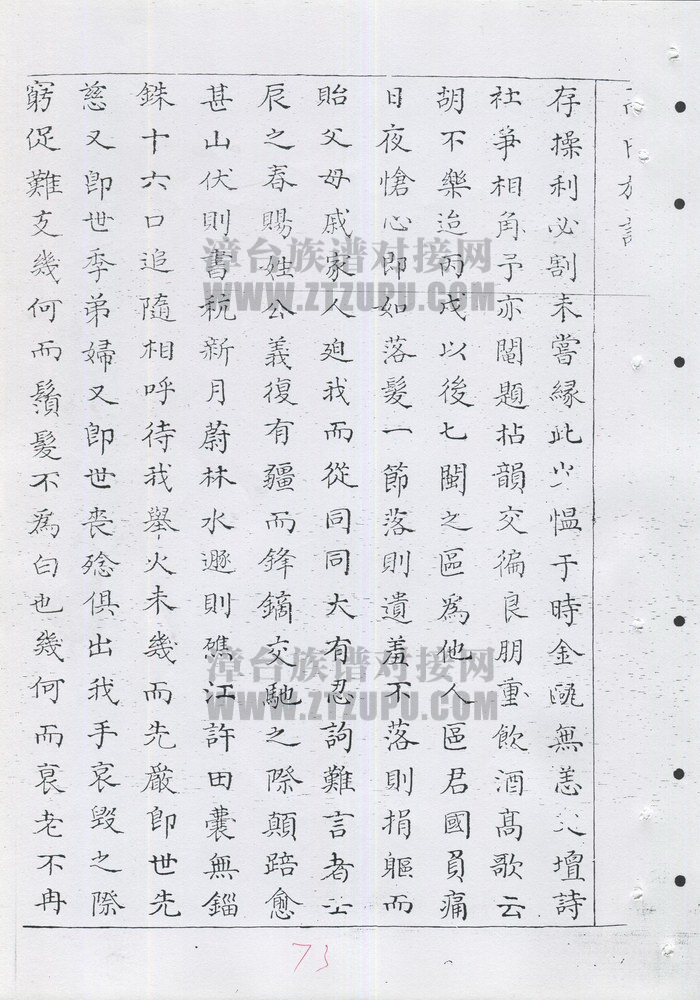 存操利必割未嘗緣此少慍于時金甌無恙文壇詩
社爭相角予亦鬮題拈韻交徧良朋重飲酒高歌云
胡不樂迨丙戌以後七閩之區為他人區君國負痛
日夜愴心即如落髮一節落則遺羞不落則捐軀而
貽父母戚家人廹我而從同同大有忍訽難言者
辰之春賜姓公義復有疆而鋒鏑交馳之際顛踣愈
甚山伏則書稅新月蔚林水遯則礁江許田囊無錙
銖十六口追隨相呼待我舉火未幾而先嚴即世先
慈又即世季弟婦又即世喪殮俱出我手哀毀之際
窮促難支幾何而鬚髮不為白也幾何而衰老不冉
漳台族谱对接网
WWW.ZTZUPU.COM
漳台族谱对接网
WWW.ZTZUPU.COM
73